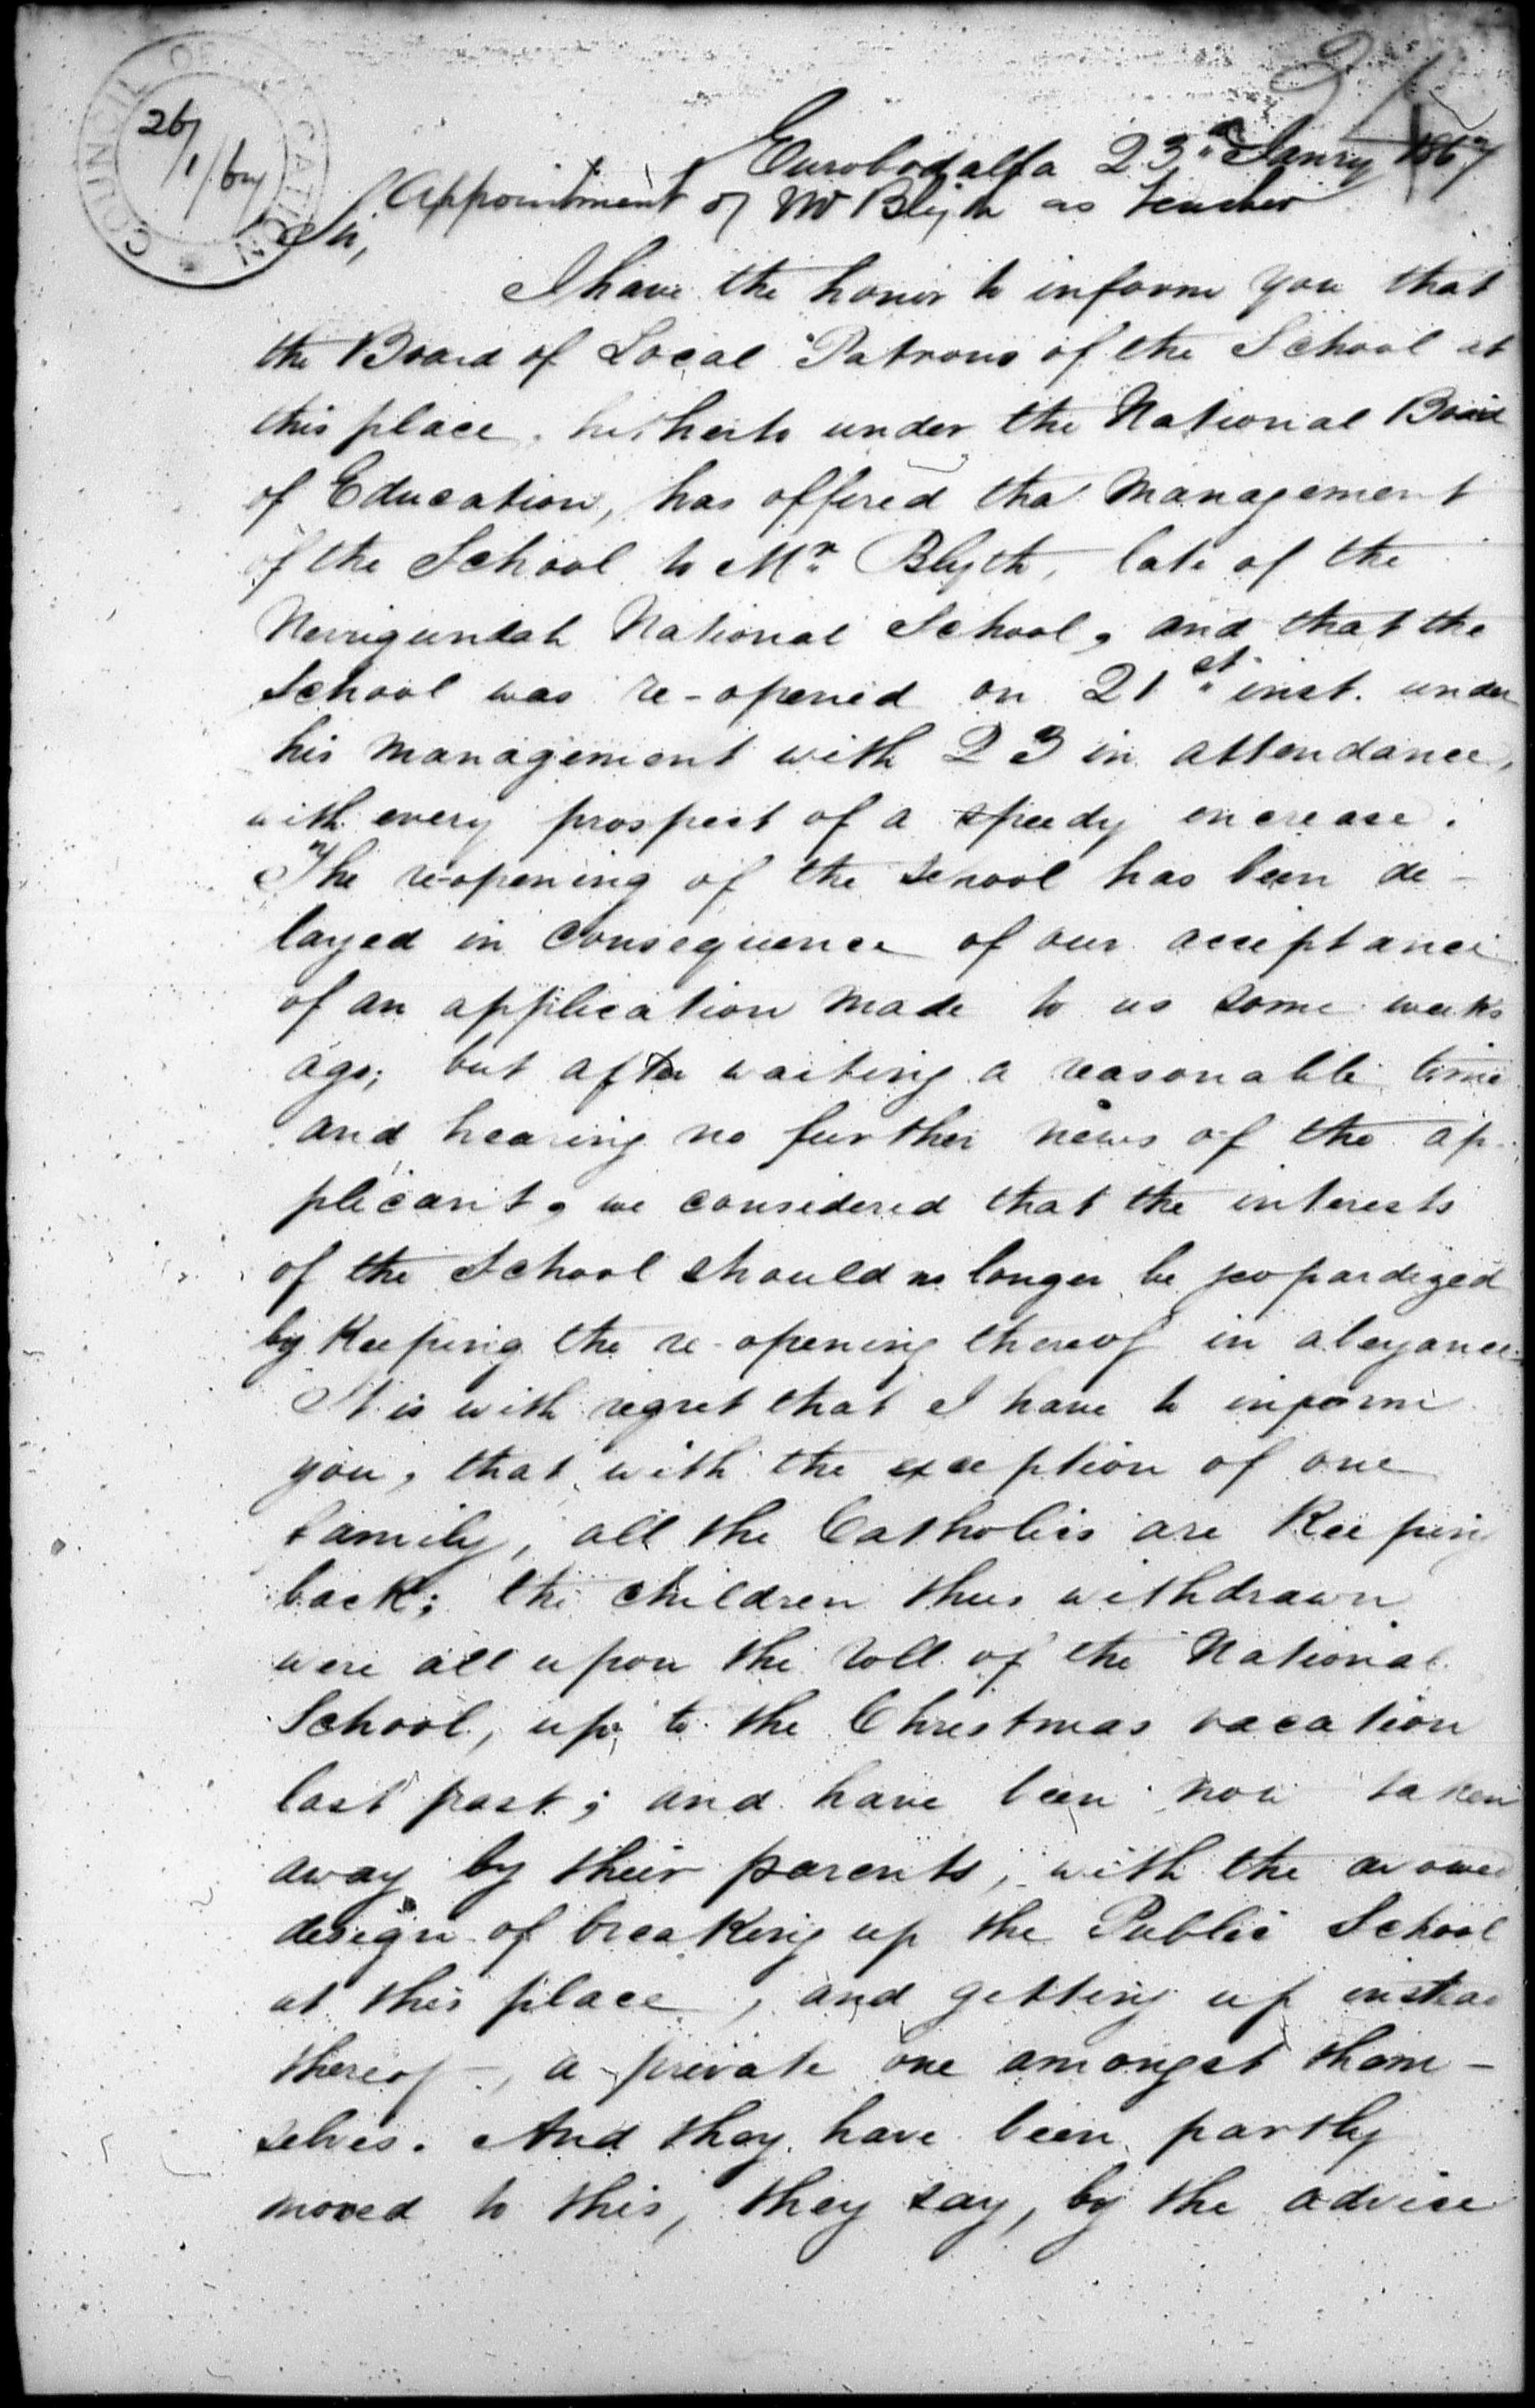 COUNCIL OF EDUCATION
26/1/67
Eurobodalla 23rd Janry 1867
Appointment of Mr Blyth as teacher
Sir,
I have the honor to inform you that
the Board of Local Patrons of the School at
this place, hitherto under the National Board
of Education, has offered the management
of the School to Mr. Blyth, late of the
Nerrigundah National School, and that the
School was re-opened on 21st inst. under
his management with 23 in attendance,
with every prospect of a speedy increase.
The re-opening of the School has been de-
layed in consequence of our acceptance
of an application made to us some weeks
ago; but after waiting a reasonable time
and hearing no further news of the ap-
plicant, we considered that the interests
of the School should no longer be jeopardized
by keeping the re-opening thereof in abeyance.
It is with regret that I have to inform
you, that with the exception of one
family, all the Catholics are keeping
back; the children thus withdrawn
were all upon the roll of the National
School, up to the Christmas vacation
last past; and have been now taken
away by their parents, with the avowed
design of breaking up the Public School
at this place, and getting up instead
thereof, a private one amongst them-
selves. And they have been partly
moved to this, they say, by the advice